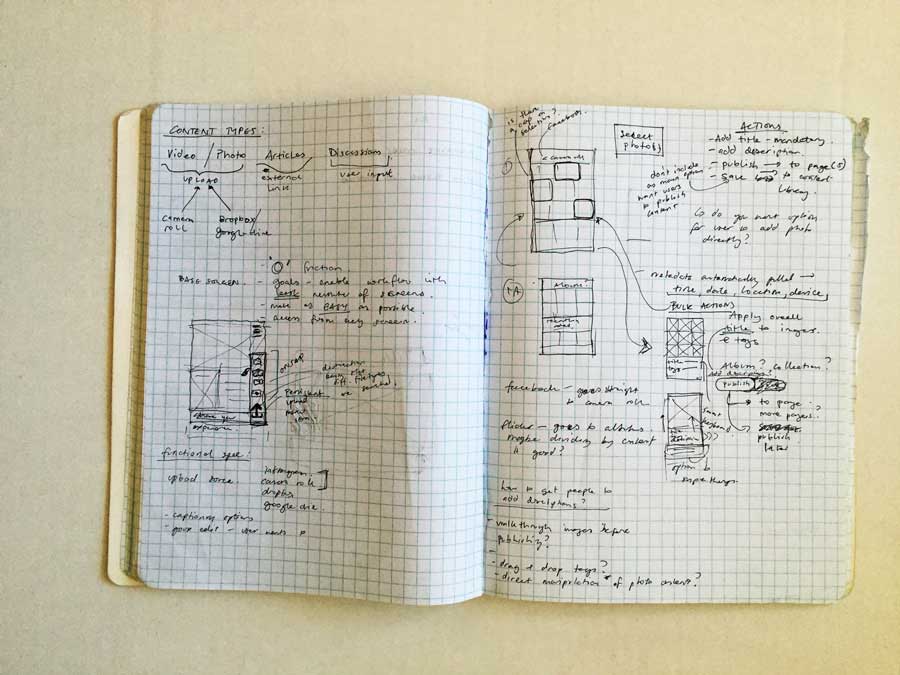 CONTENT TYPES:
Video / Photo Articles Discussions
UPLOAD
external
link
user input
camera
roll
Dropbox/
google drive
- "O" friction
BASE SCREEN.
- goals - enable workflow with
least number of screens.
- make as EASY as possible.
- access from any screen.
Persistent
upload
functional spec:
upload source.
instagram.
camera roll
dropbox
google drive.
- captioning options
user wants
is there
a cap on
selection?
Facebook.
①
< camera roll
select
photo(s)
dont include
as main option
want users
to publish
content
ACTIONS
- Add title - mandatory.
- add description.
- publish → to page(s)
- save to content
library.
do you want option
for user to add photo
directly?
- metadata automatically pulled →
title, date, location, device
1A
ALBUMS
BULK ACTIONS
Apply overall
title to images.
& tags
title
tags
Album? Collection?
Add description?
publish
→ to page?
more pages.
publish
later
facebook - goes straight
to camera roll
flickr - goes to albums.
maybe dividing by content
is good?
how to get people to
add descriptions?
- walkthrough images before
publishing?
- drag & drop tags?
- direct manipulation of photo content?